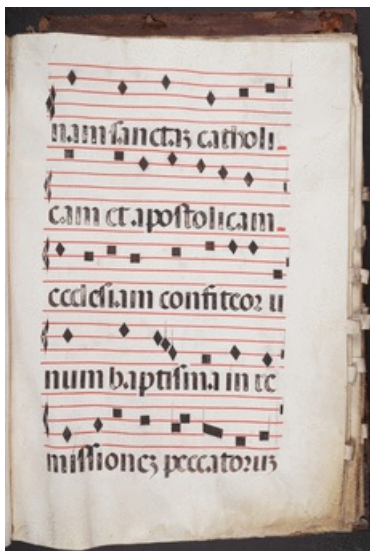 nam sanctaʒ catholi
cam et apostolicam
ecclesiam confiteor u
num baptisma in re
missioneʒ peccatoruʒ